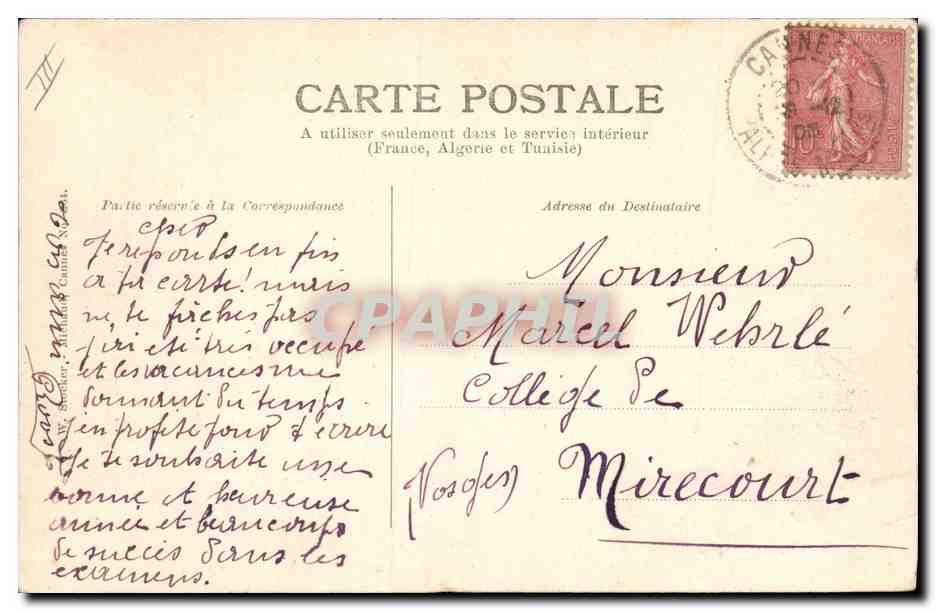 III
CARTE POSTALE
A utiliser seulement dans le service intérieur
(France, Algerie et Tunisie)
Partie réservée à la Correspondance
Adresse du Destinataire
CANNES
Cher
Je reponds en fin
a ta carte! mais
ne te fâches pas
j'ai été très occupé
et les vacances me
donnant du temps
j'en profite pour t'ecrire
Je te souhaite une
bonne et heureuse
année et beaucoup
de succès dans les
examens.
W. Stocker, Michaud, Cannes
Monsieur
Marcel Wehrlé
Collège de
Mirecourt
(Vosges)
CPAPHIL